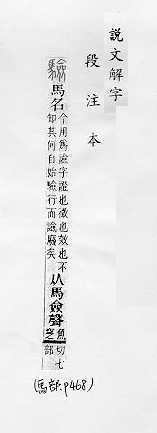 說文解字
段注本
驗
馬名
今用爲譣字證也徵也效也不
知其何自始驗行而譣廢矣
从馬僉聲
魚窆切七部
(馬部p468)